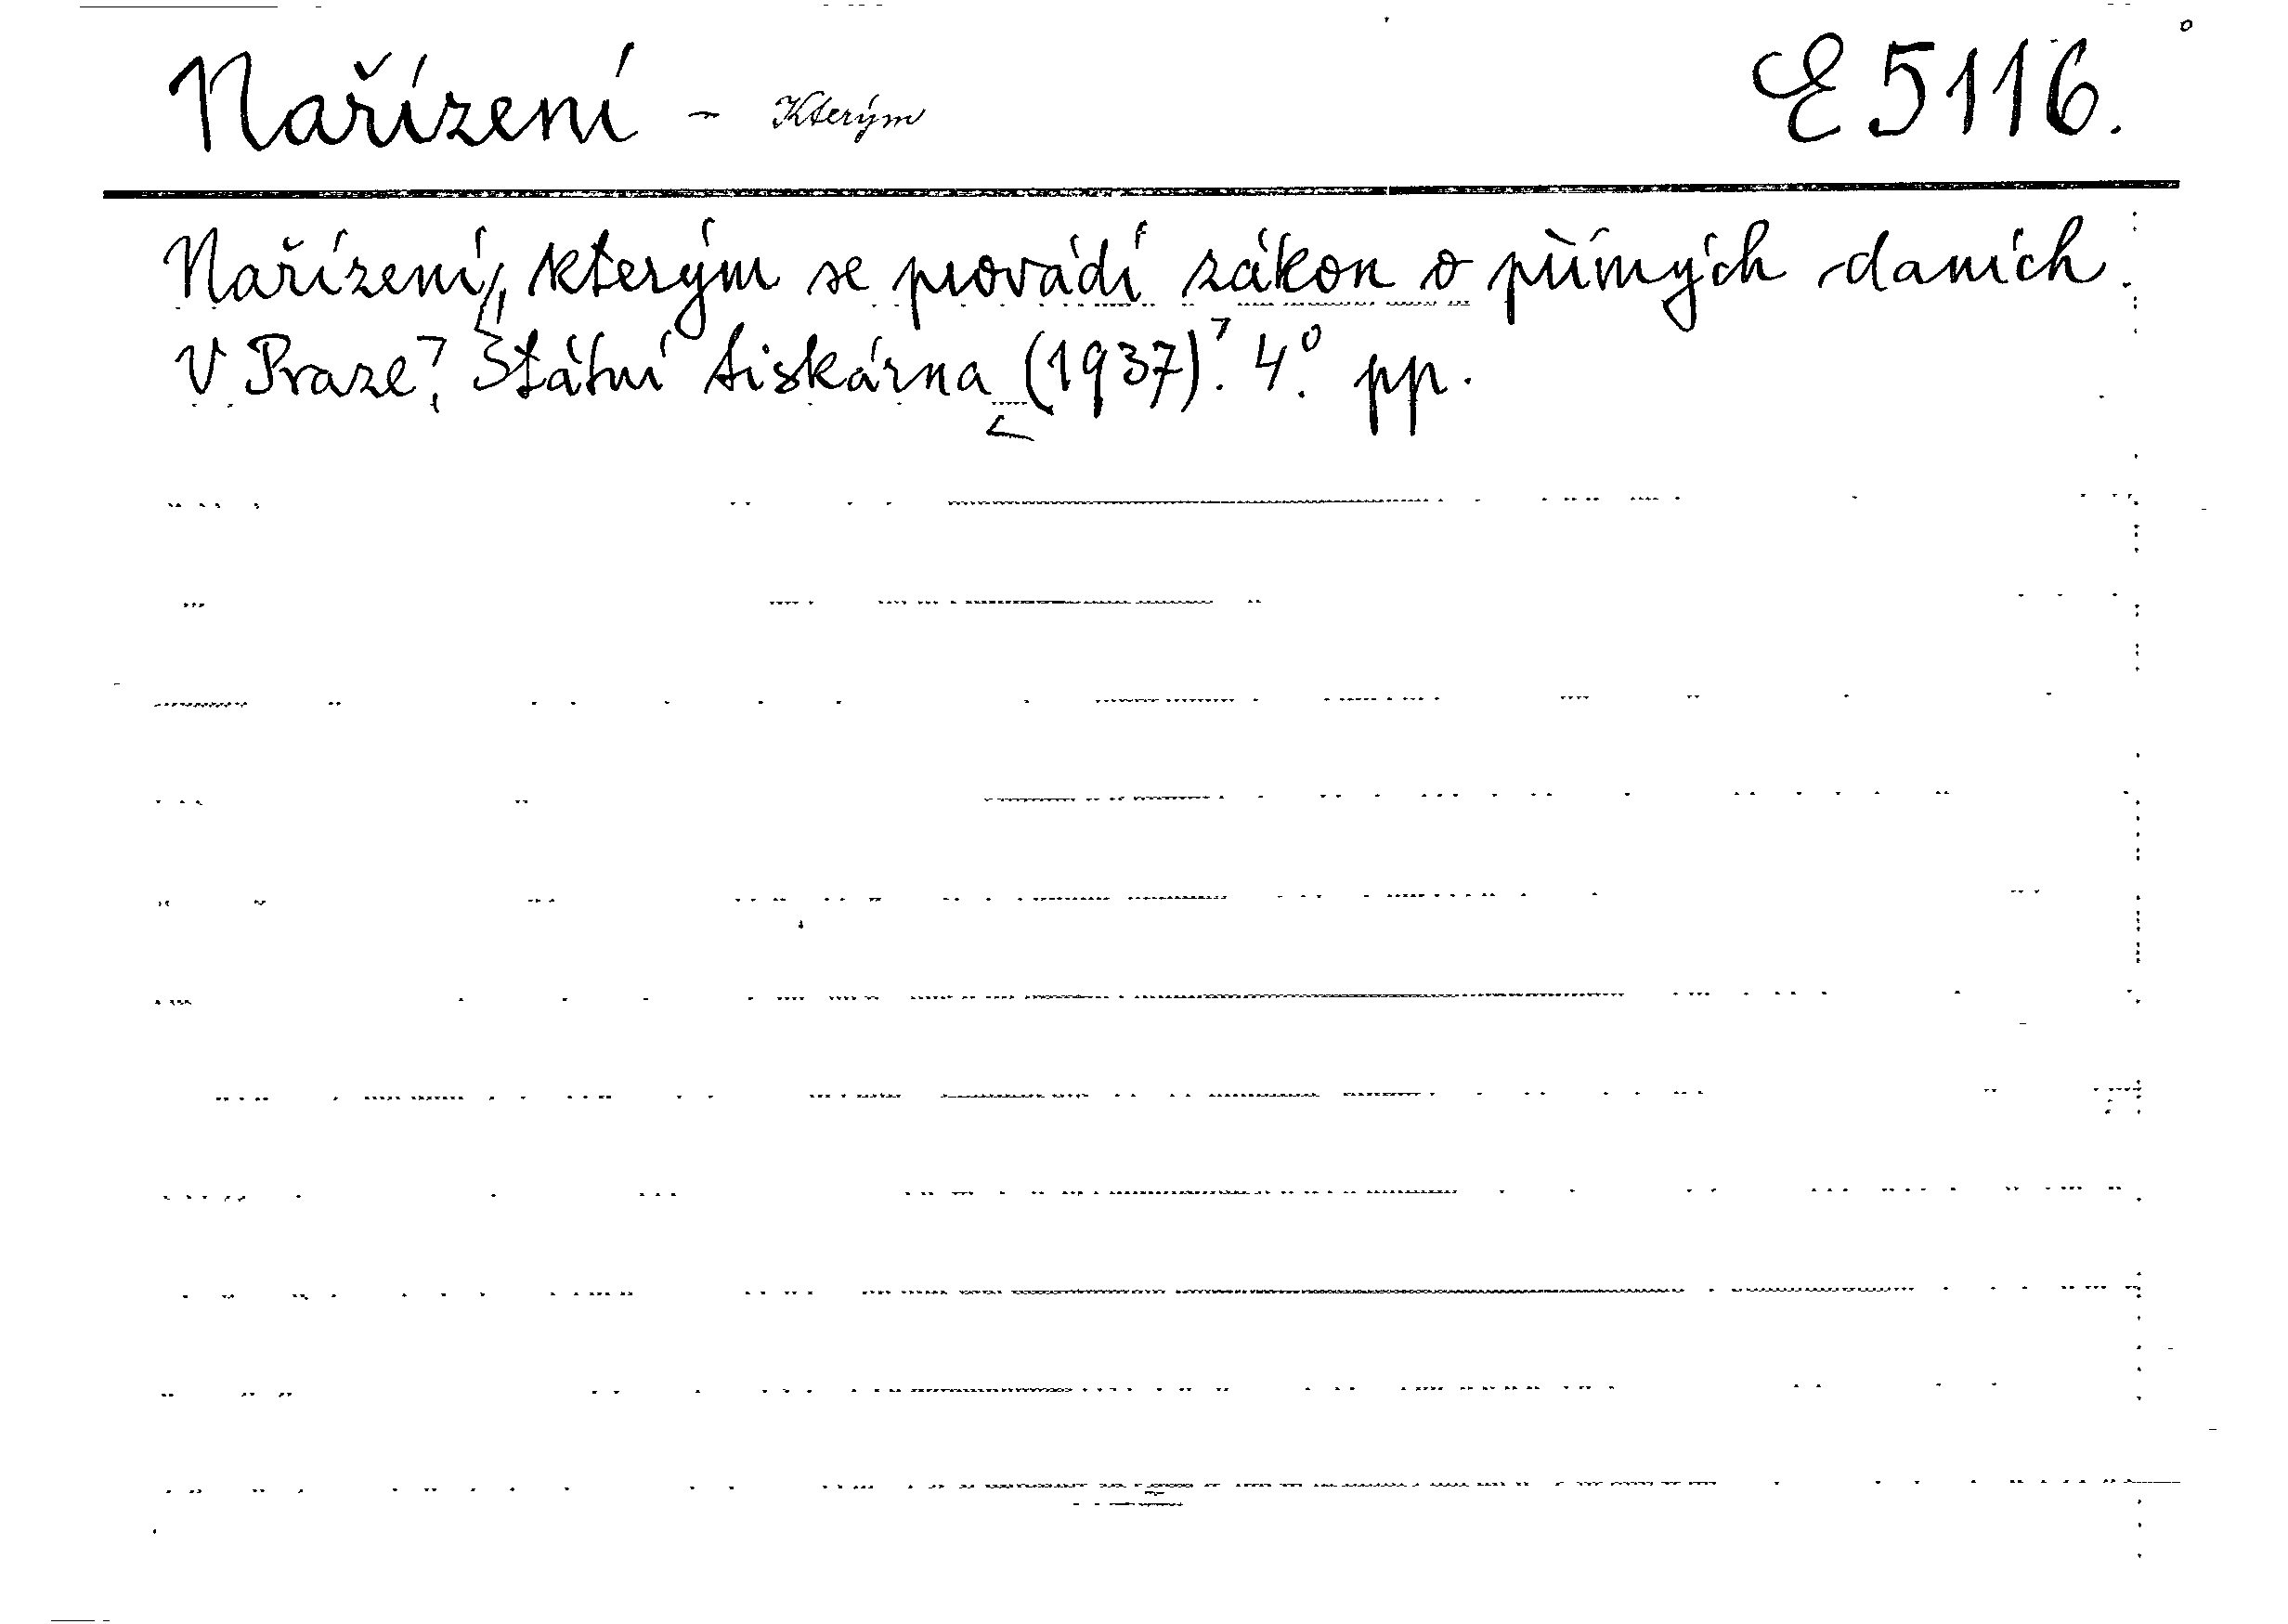 Nařízení - Kterým E 5116.
Nařízení, kterým se provádí zákon o přímých daních.
V Praze, Státní tiskárna (1937). 4.° pp.